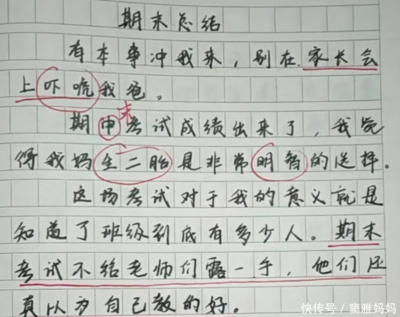 期末总结
有本事冲我来，别在家长会
上吓唬我爸。
末
期中考试成绩出来了，我觉
得我妈生二胎是非常明智的选择.
这场考试对于我的意义就是
知道了班级到底有多少人。期末
考试不给老师们露一手，他们还
真以为自己教的好。
快传号/窦雅妈妈